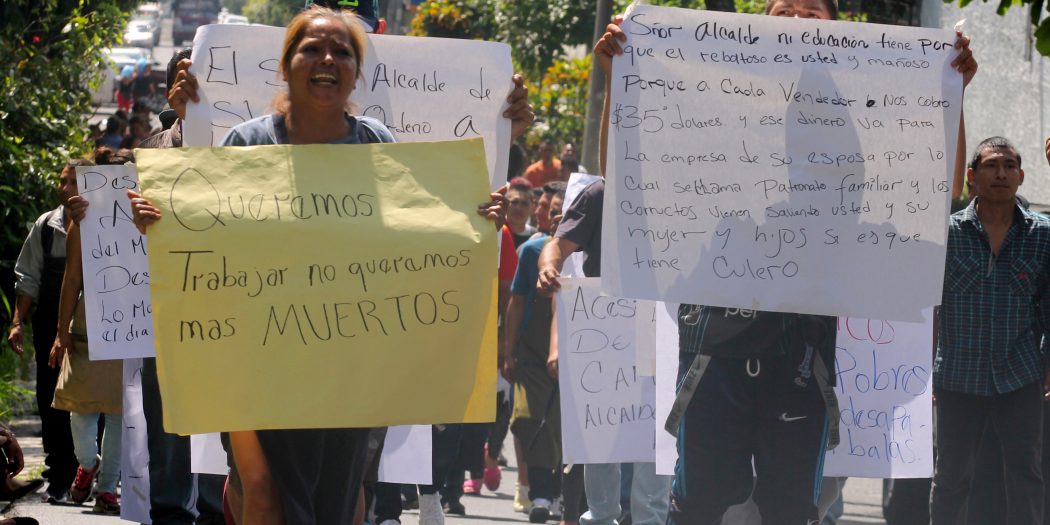 Queremos
Trabajar no queremos
mas MUERTOS
El S Alcalde de
Ordeno a
Señor Alcalde ni educación tiene por
que el rebatoso es usted y mañoso
Porque a Cada Vendedor Nos cobro
$35 dolares y ese dinero va para
La empresa de su esposa por lo
cual se llama Patronato familiar y los
corructos vienen saliendo usted y su
mujer y hijos si es que
tiene Culero
Des
A
del M
Des
Lo M
el dia
Aces
De
Ca
Alcald
cos
Pobres
desapa
balas.